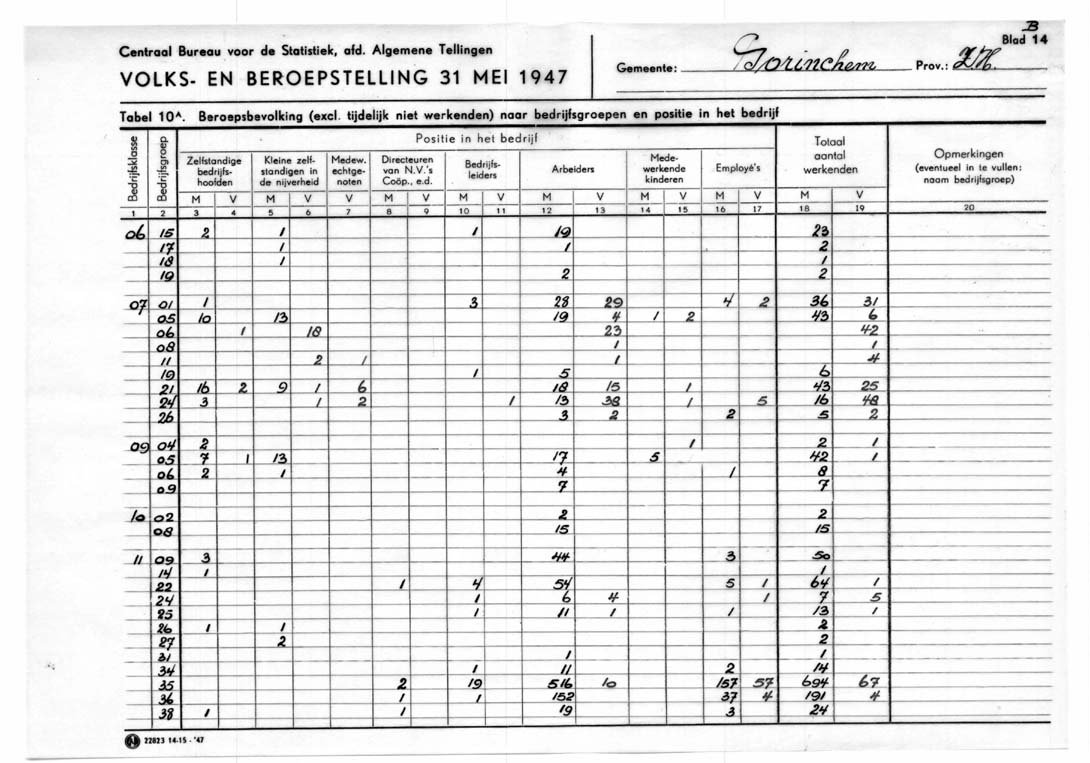 B
Blad 14
Centraal Bureau voor de Statistiek, afd. Algemene Tellingen
VOLKS- EN BEROEPSTELLING 31 MEI 1947
Gemeente: Gorinchem Prov.: Z.H.
Tabel 10A. Beroepsbevolking (excl. tijdelijk niet werkenden) naar bedrijfsgroepen en positie in het bedrijf
Bedrijfsklasse Bedrijfsgroep Positie in het bedrijf Totaal aantal werkenden Opmerkingen (eventueel in te vullen: naam bedrijfsgroep)
Zelfstandige bedrijfs-hoofden Kleine zelf-standigen in de nijverheid Medew. echtge-noten Directeuren van N.V.'s Coöp., e.d. Bedrijfs-leiders Arbeiders Mede-werkende kinderen Employé's
M V M V V M V M V M V M V M V M V
1 2 3 4 5 6 7 8 9 10 11 12 13 14 15 16 17 18 19 20
06 15 2 1 1 19 23
17 1 1 2
18 1 1
19 2 2
07 01 1 3 28 29 4 2 36 31
05 10 13 19 4 1 2 43 6
06 1 18 23 42
08 1 1
11 2 1 1 4
19 1 5 6
21 16 2 9 1 6 18 15 1 43 25
24 3 1 2 1 13 38 1 5 16 48
26 3 2 2 5 2
09 04 2 1 2 1
05 7 1 13 17 5 42 1
06 2 1 4 1 8
09 7 7
10 02 2 2
08 15 15
11 09 3 44 3 50
14 1 1
22 1 4 54 5 1 64 1
24 1 6 4 1 7 5
25 1 11 1 1 13 1
26 1 1 2
27 2 2
31 1 1
34 1 11 2 14
35 2 19 516 10 157 57 694 67
36 1 1 152 37 4 191 4
38 1 1 19 3 24
22823 14-15 - '47